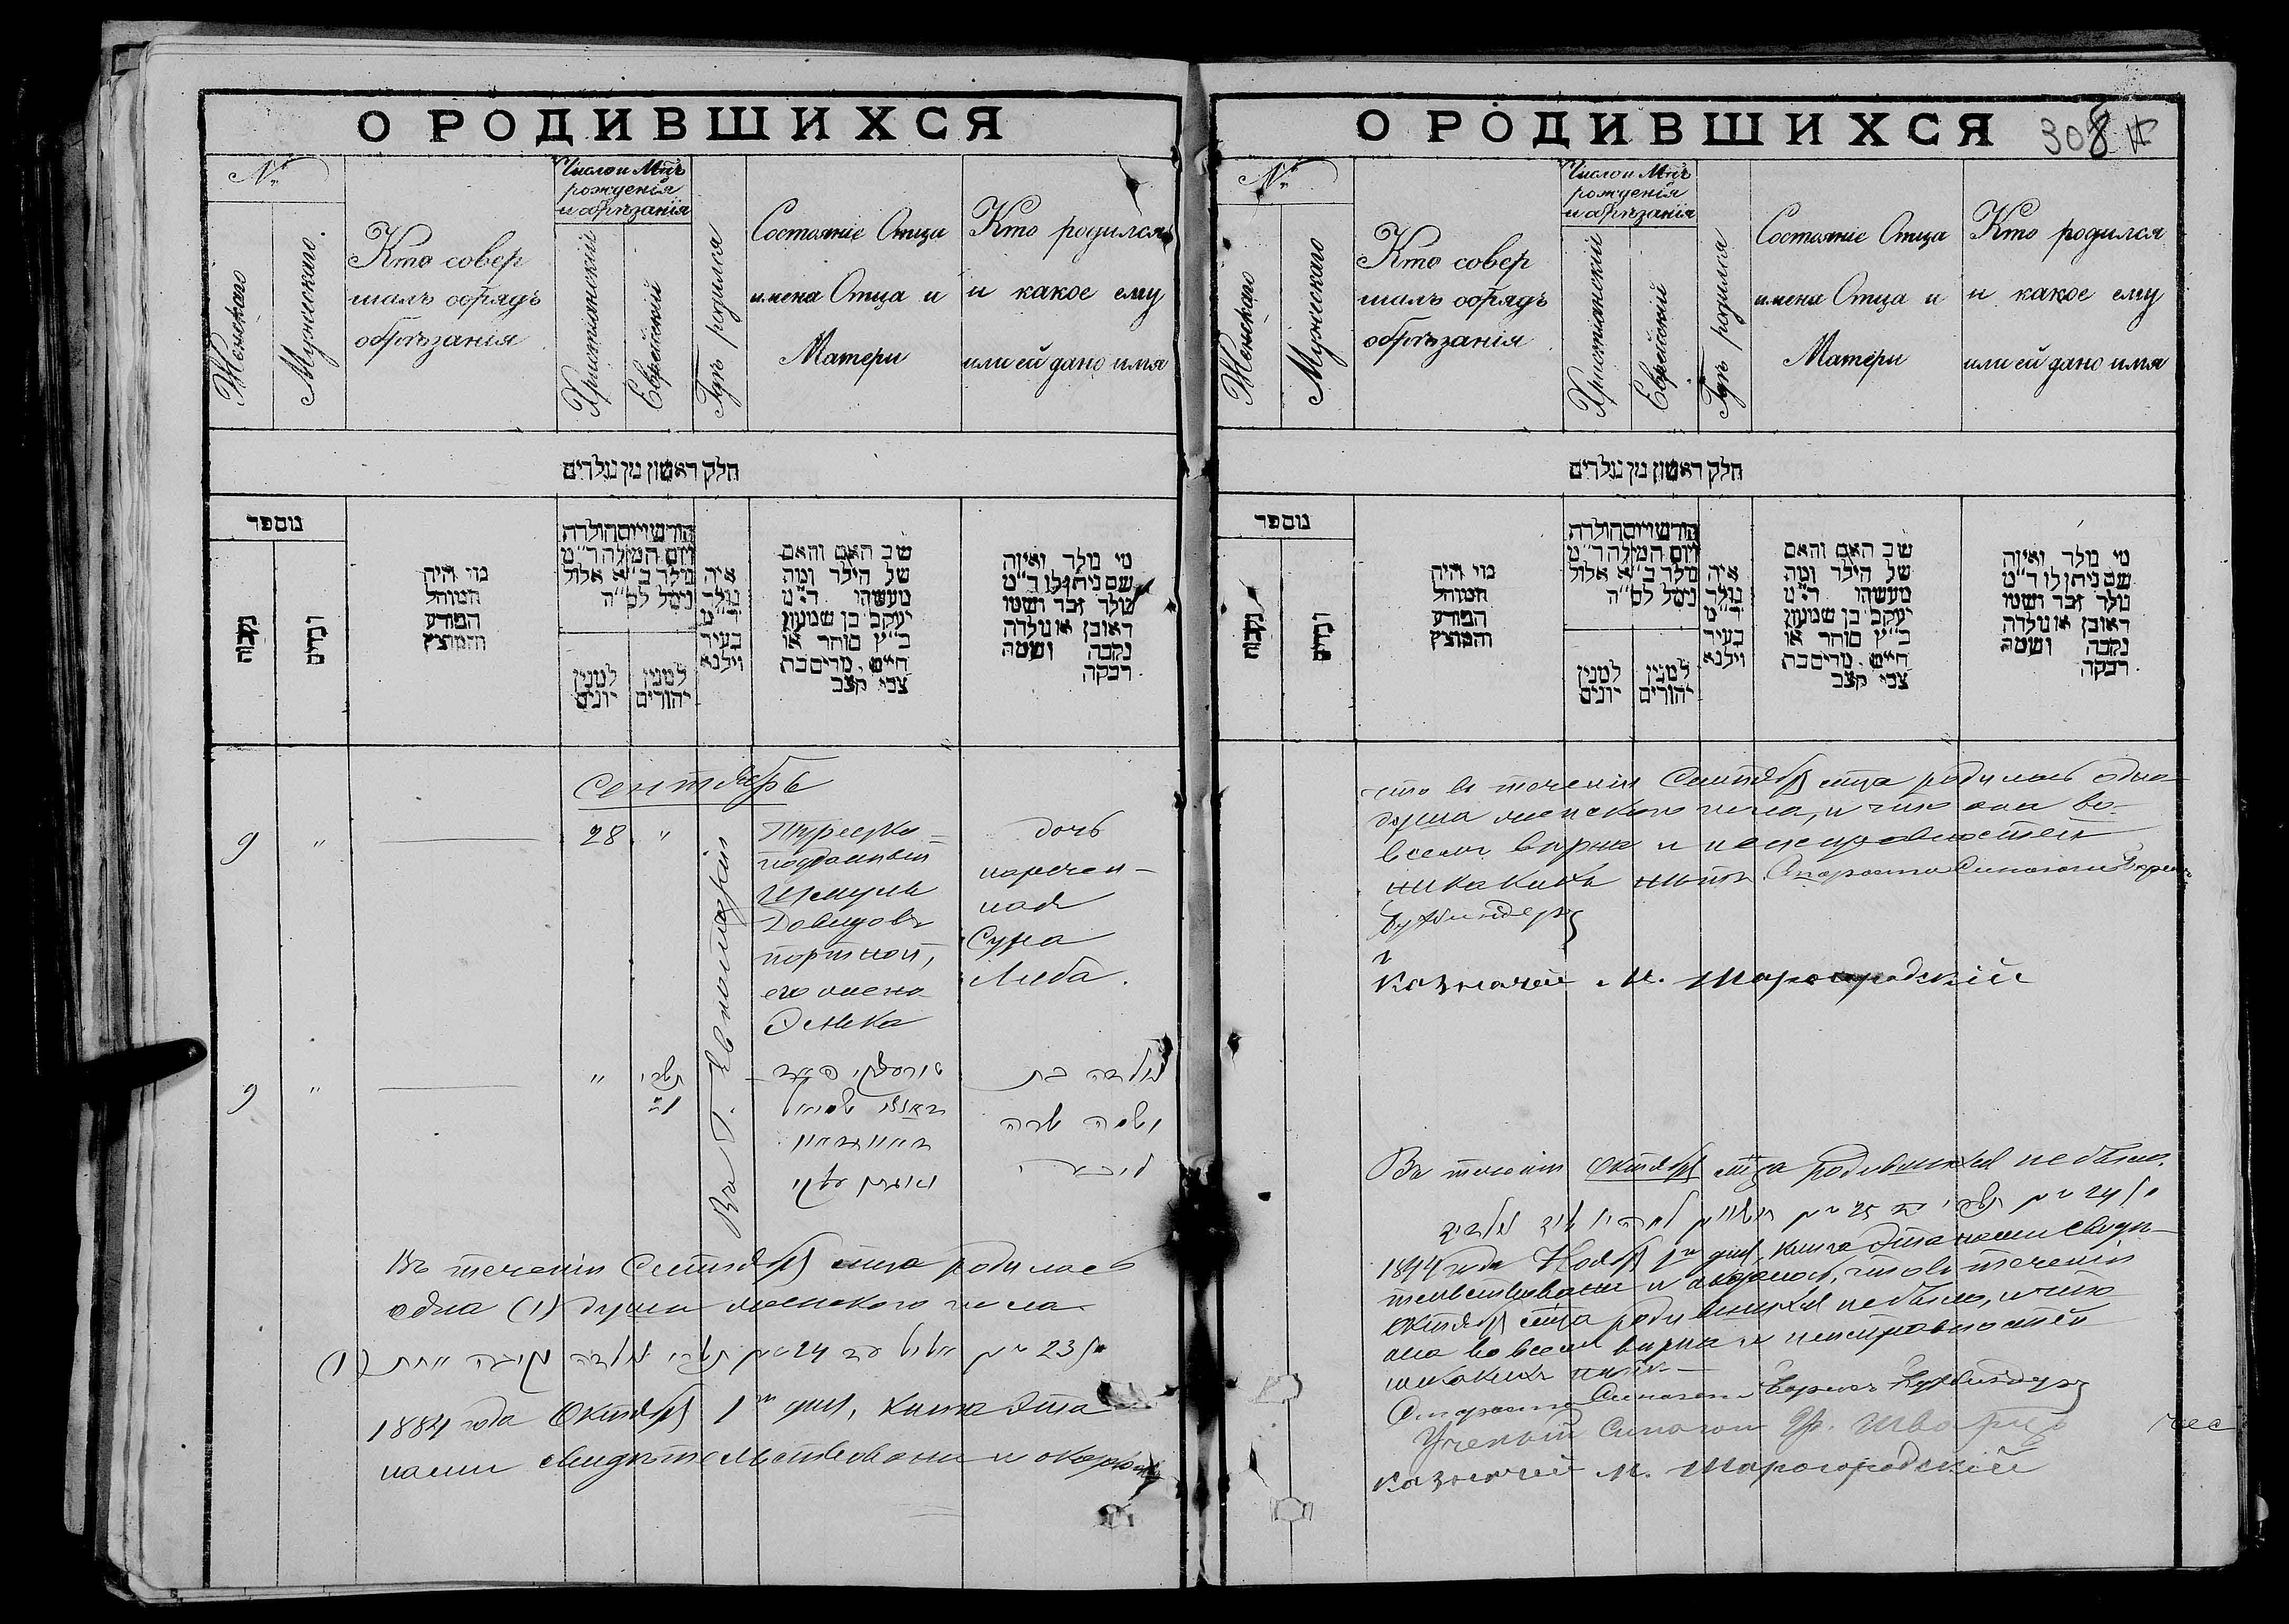 О РОДИВШИХСЯ
№
Женскаго
Мужескаго.
Кто совер
шалъ обрядъ
обрѣзанія
Число и Мѣц.
рожденія
и обрѣзанія
Христіанскій
Еврейскій
Гдѣ родился
Состояніе Отца
имена Отца и
Матери
Кто родился
и какое ему
или ей дано имя
חלק ראשון מן נולדים
מספר
נקבות
זכרים
מי היה
המוהל
הפורע
והמוצץ
חודש ויום הולדה
ויום המילה ד״מ
נולד ב״א אלול
נימל לס״ה
למנין
יונים
למנין
יהודים
איה
נולד
ד״מ
בעיר
וילנא
שב האם והאם
של הילד ומה
מעשהו ד״מ
יעקב בן שמעון
כ״ץ סוחר או
חייט. מרים בת
צבי קצב
מי נולד ואיזה
שם ניתן לו ד״מ
נולד זכר ושמו
ראובן או נולדה
נקבה ושמה
רבקה
Сентябрь
9 " 28 "
Въ Г. Евпаторіи
Турецко-
подданный
Шмуль
Давидовъ
портной,
его жена
Эстька
дочь
наречен-
ная
Сура
Либа.
9 " " תשרי
נולדה בת
ושמה שרה
ליבא
Въ теченіи Сентября мѣца родилась
одна (1) душа женского пола
1884 года Октября 1го дня, книга эта
нами свидѣтельствована и оказалось
О РОДИВШИХСЯ 308
№
Женскаго
Мужескаго
Кто совер
шалъ обрядъ
обрѣзанія
Число и Мѣц.
рожденія
и обрѣзанія
Христіанскій
Еврейскій
Гдѣ родился
Состояніе Отца
имена Отца и
Матери
Кто родился
и какое ему
или ей дано имя
חלק ראשון מן נולדים
מספר
נקבות
זכרים
מי היה
המוהל
הפורע
והמוצץ
חודש ויום הולדה
ויום המילה ד״מ
נולד ב״א אלול
נימל לס״ה
למנין
יונים
למנין
יהודים
איה
נולד
ד״מ
בעיר
וילנא
שב האם והאם
של הילד ומה
מעשהו ד״מ
יעקב בן שמעון
כ״ץ סוחר או
חייט. מרים בת
צבי קצב
מי נולד ואיזה
שם ניתן לו ד״מ
נולד זכר ושמו
ראובן או נולדה
נקבה ושמה
רבקה
что въ теченіи Сентября мѣца родилась одна
душа женского пола, и что она во
всемъ вѣрна и неисправностей
никакихъ нѣтъ. Староста Синагоги
Казначей М. Шарогородскій
Въ теченіи Октября мѣца родившихся не было.
1884 года Ноября 1го дня, книга эта нами свидѣ-
тельствована и оказалось, что въ теченіи
Октября мѣца родившихся не было, и что
она во всемъ вѣрна и неисправностей
никакихъ нѣтъ.
Староста Синагоги
Ученый Синагоги Шварцъ
Казначей М. Шарогородскій